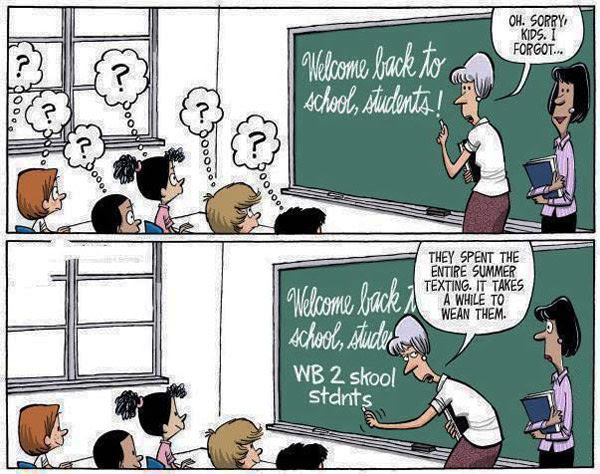 ?
?
?
?
?
?
Welcome back to
school, students!
OH. SORRY,
KIDS. I
FORGOT...
THEY SPENT THE
ENTIRE SUMMER
TEXTING. IT TAKES
A WHILE TO
WEAN THEM.
Welcome back t
school, stude
WB 2 skool
stdnts